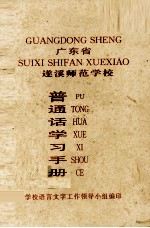 GUANGDONG SHENG
广东省
SUIXI SHIFAN XUEXIAO
遂溪师范学校
普 PU
通 TONG
话 HUA
学 XUE
习 XI
手 SHOU
册 CE
学校语言文字工作领导小组编印